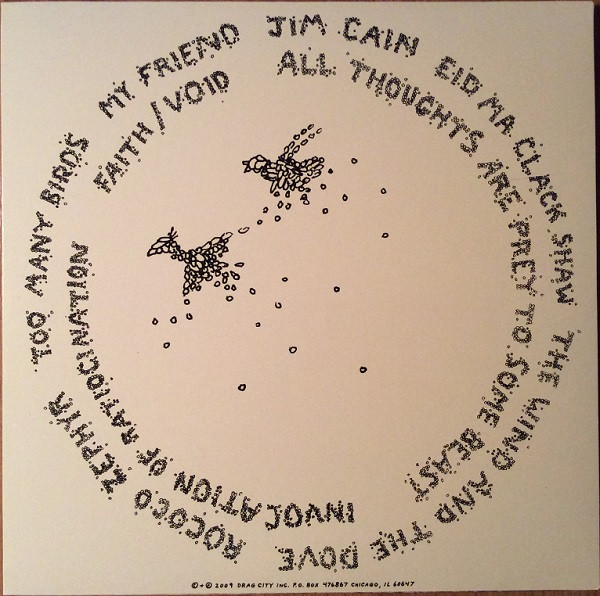 JIM CAIN
EID MA CLACK SHAW
THE WIND AND THE DOVE
ROCOCO ZEPHYR
TOO MANY BIRDS
MY FRIEND
ALL THOUGHTS ARE PREY TO SOME BEAST
INVOCATION OF RATIOCINATION
FAITH/VOID
©+℗ 2009 DRAG CITY INC. P.O. BOX 476867 CHICAGO, IL 60647